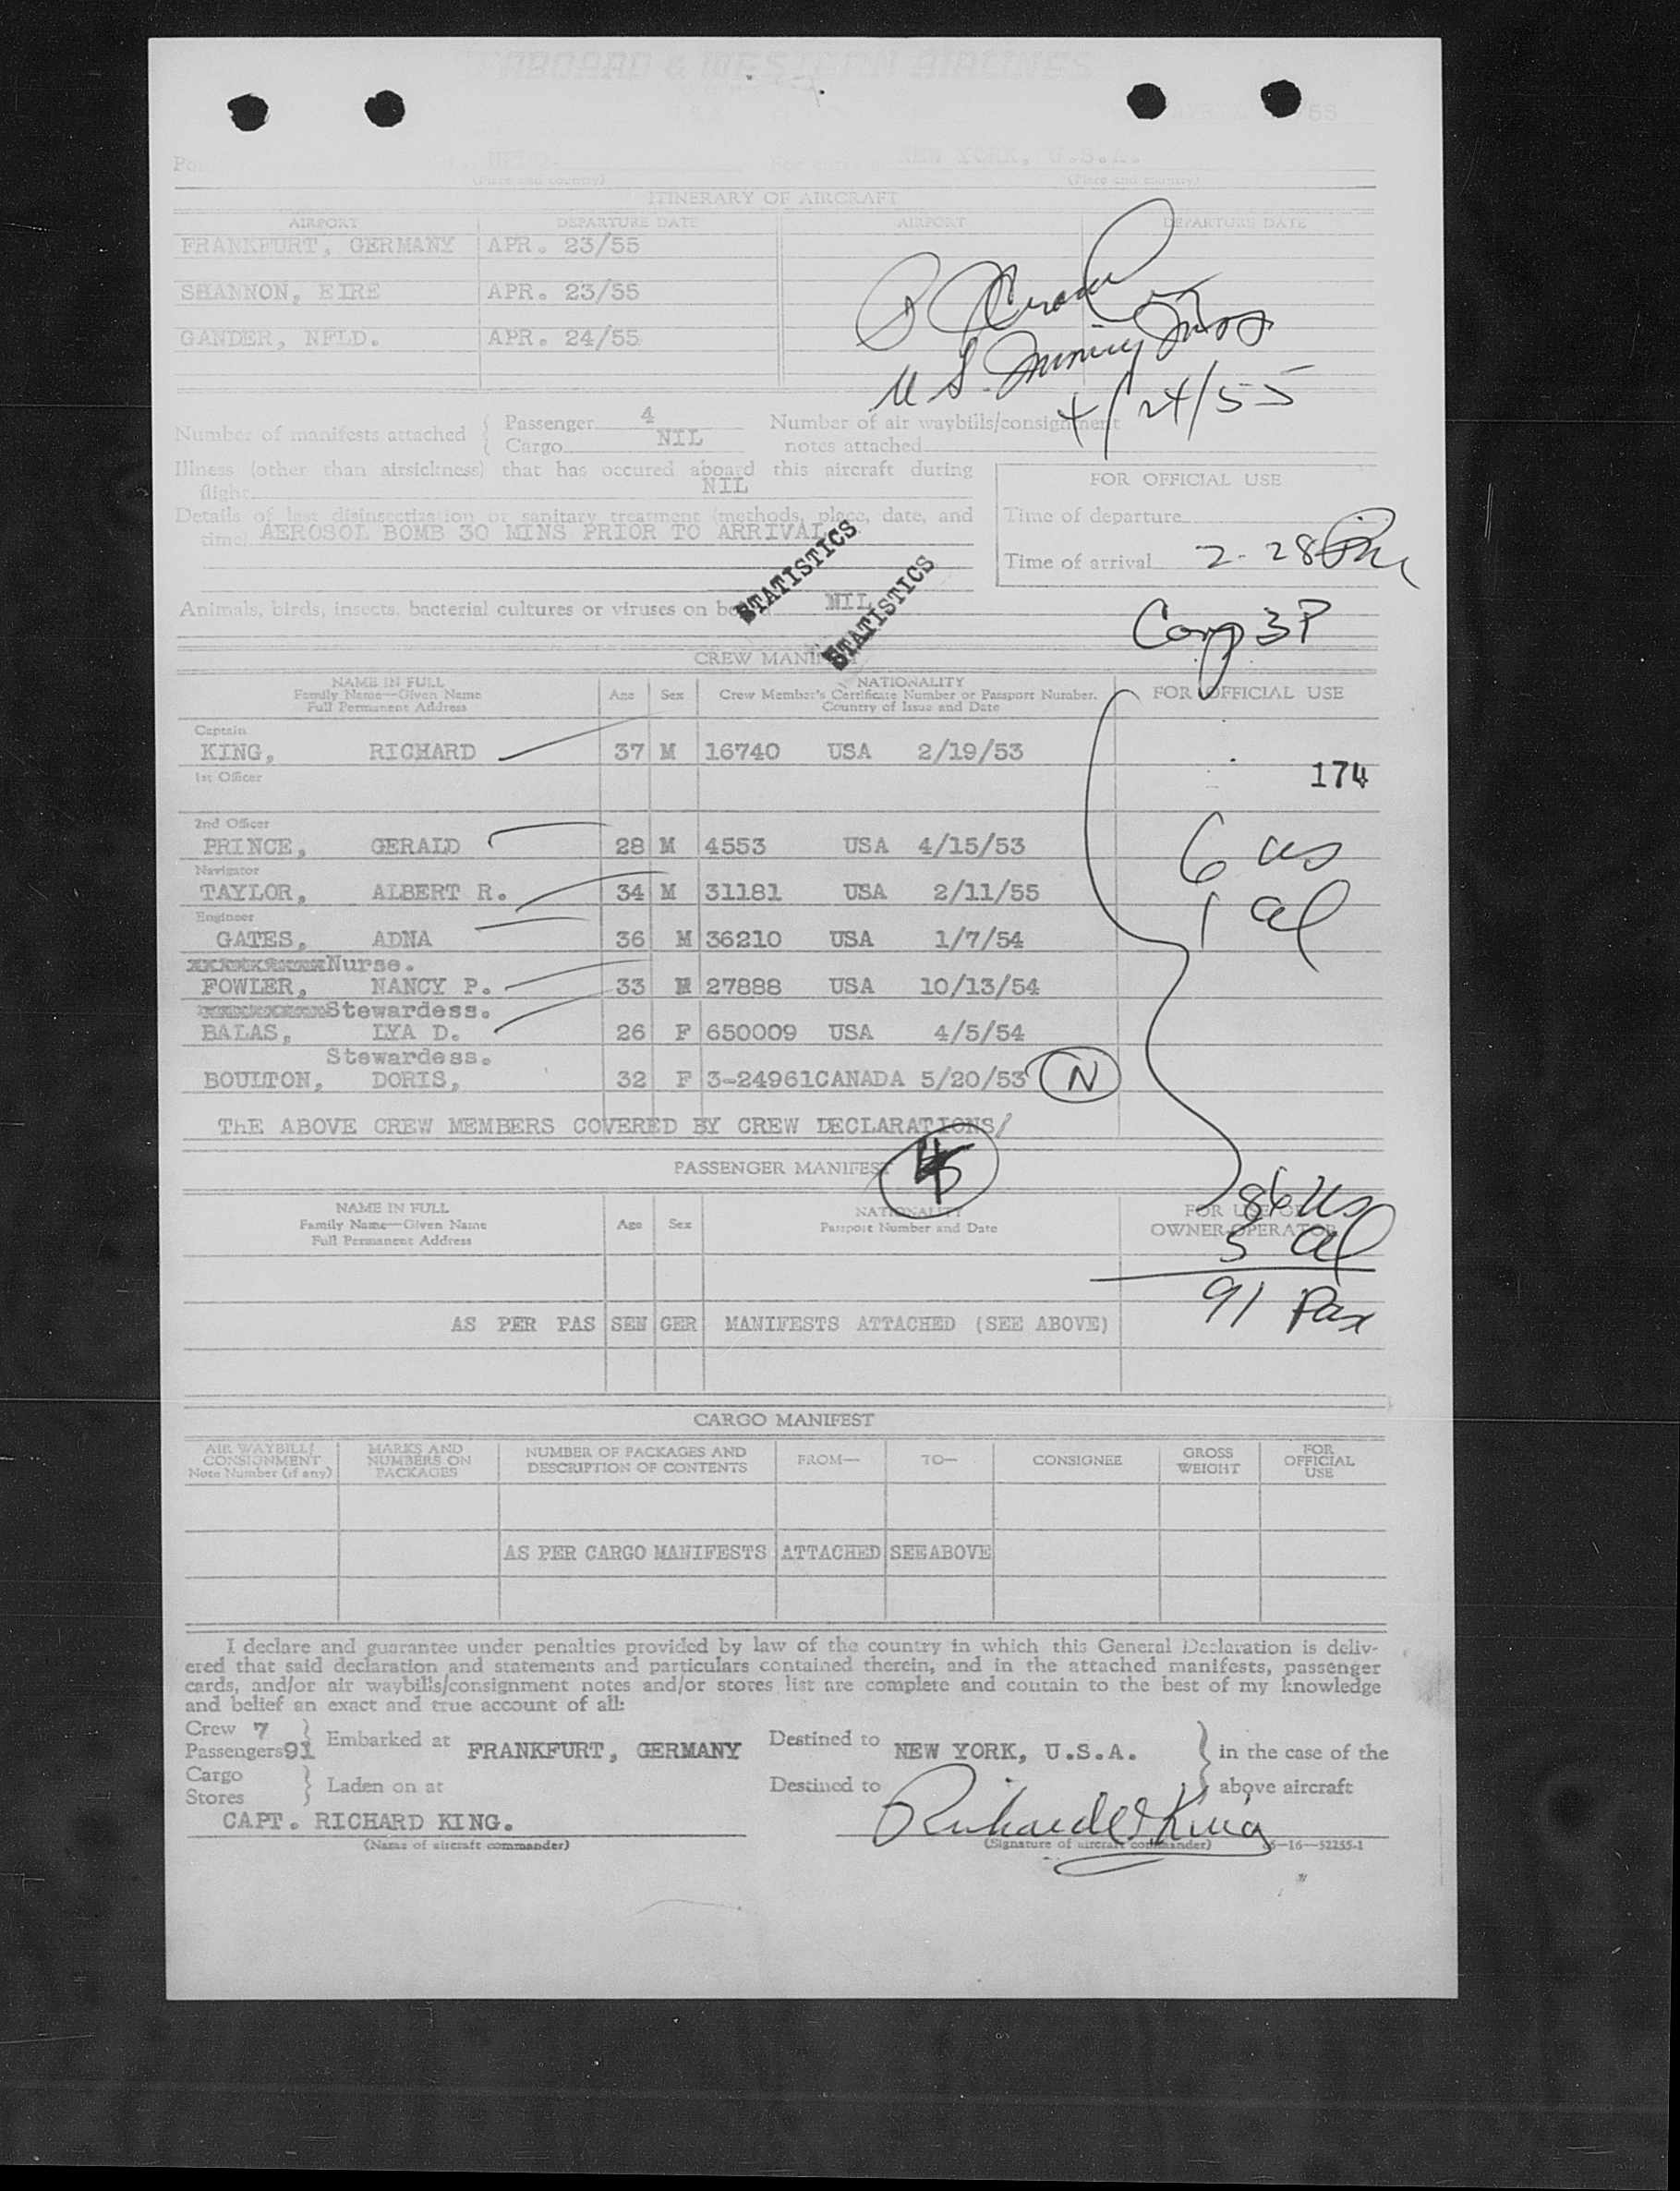 ABOARD & WESTERN AIRLINES
55
NEW YORK, U.S.A.
(Place and country) (Place and country)
ITINERARY OF AIRCRAFT
AIRPORT DEPARTURE DATE AIRPORT DEPARTURE DATE
FRANKFURT, GERMANY APR. 23/55
SHANNON, EIRE APR. 23/55
GANDER, NFLD. APR. 24/55
U.S.
4/24/55
Number of manifests attached { Passenger 4 Number of air waybills/consignment
Cargo NIL notes attached
Illness (other than airsickness) that has occured aboard this aircraft during
flight NIL
FOR OFFICIAL USE
Details of last disinsectization or sanitary treatment (methods, place, date, and
time) AEROSOL BOMB 30 MINS PRIOR TO ARRIVAL
Time of departure
Time of arrival 2-28 Pm
STATISTICS
STATISTICS
Animals, birds, insects, bacterial cultures or viruses on NIL
3P
CREW
NAME IN FULL
Family Name—Given Name
Full Permanent Address
Age Sex
NATIONALITY
Crew Member's Certificate Number or Passport Number.
Country of Issue and Date
FOR OFFICIAL USE
Captain
KING, RICHARD 37 M 16740 USA 2/19/53
1st Officer
174
2nd Officer
PRINCE, GERALD 28 M 4553 USA 4/15/53
6 us
Navigator
TAYLOR, ALBERT R. 34 M 31181 USA 2/11/55
1 al
Engineer
GATES, ADNA 36 M 36210 USA 1/7/54
Nurse.
FOWLER, NANCY P. 33 27888 USA 10/13/54
Stewardess.
BALAS, LYA D. 26 F 650009 USA 4/5/54
Stewardess.
BOULTON, DORIS, 32 F 3-24961CANADA 5/20/53 N
ThE ABOVE CREW MEMBERS COVERED BY CREW DECLARATIONS/
PASSENGER MANIFEST
NAME IN FULL
Family Name—Given Name
Full Permanent Address
Age Sex
NATIONALITY
Passport Number and Date
FOR USE OF
OWNER-OPERATOR
86 us
5 al
91 Pax
AS PER PAS SEN GER MANIFESTS ATTACHED (SEE ABOVE)
CARGO MANIFEST
AIR WAYBILL/
CONSIGNMENT
Note Number (if any)
MARKS AND
NUMBERS ON
PACKAGES
NUMBER OF PACKAGES AND
DESCRIPTION OF CONTENTS
FROM— TO— CONSIGNEE
GROSS
WEIGHT
FOR
OFFICIAL
USE
AS PER CARGO MANIFESTS ATTACHED SEE ABOVE
I declare and guarantee under penalties provided by law of the country in which this General Declaration is deliv-
ered that said declaration and statements and particulars contained therein, and in the attached manifests, passenger
cards, and/or air waybills/consignment notes and/or stores list are complete and contain to the best of my knowledge
and belief an exact and true account of all:
Crew 7
Passengers 91 } Embarked at FRANKFURT, GERMANY Destined to NEW YORK, U.S.A. } in the case of the
Cargo
Stores } Laden on at Destined to above aircraft
CAPT. RICHARD KING. Richard King
(Name of aircraft commander) (Signature of aircraft commander) 16—52255-1